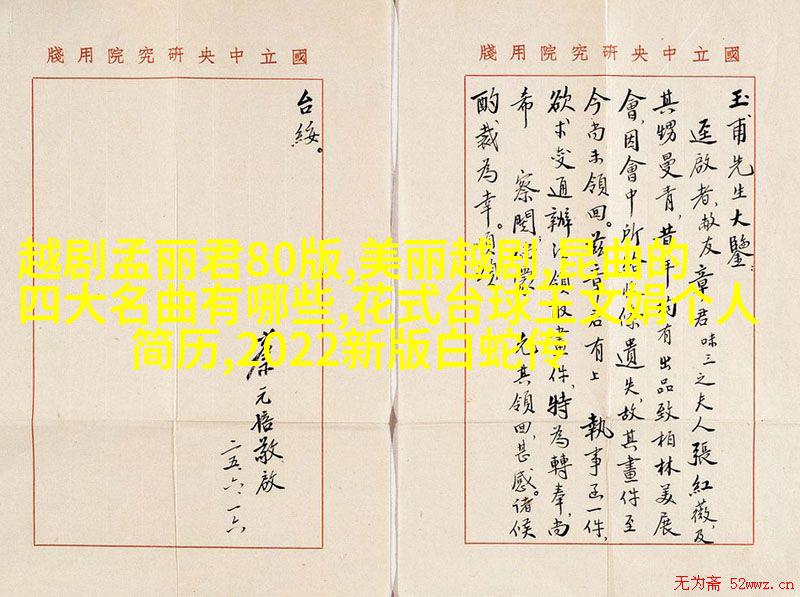 國立中央研究院用牋
玉甫先生大鑒
逕啟者、敝友章君味三之夫人張紅薇及
其甥曼青,昔年均有出品致柏林美展
會,因會中所保遺失,故其畫件至
今尚未領回。茲章君有上 執事函一件,
欲求交通辦法領收畫件,特為轉奉,尚
希 察閱 允其領回,甚感。諸候
酌裁為幸。順頌
國立中央研究院用牋
台綏。
蔡元培敬啟
二五、六、一六
越剧孟丽君80版,美丽越剧,昆曲的
四大名曲有哪些,花式台球王文娟个人
简历,2022新版白蛇传
无为斋 52wwz.cn